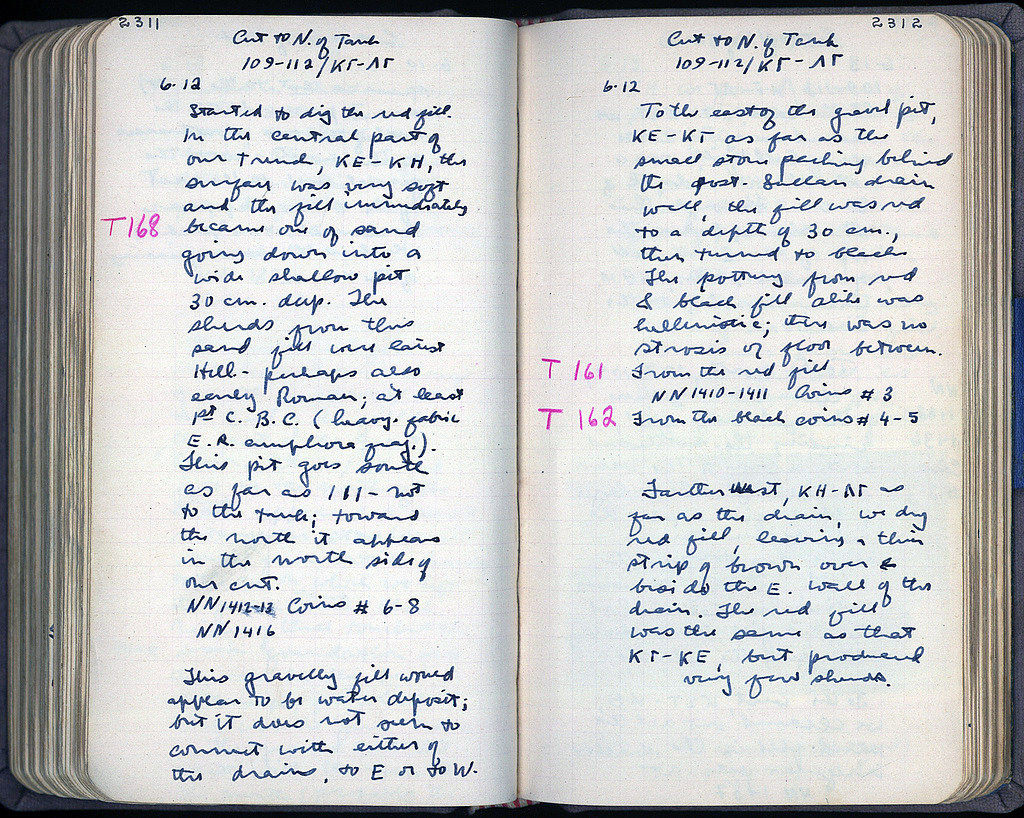 2311
Cut to N. of Tank
109-112/ΚΓ-ΛΓ
6.12
Started to dig the red fill.
In the central part of
our trench, ΚΕ-ΚΗ, the
surface was very soft
and the fill immediately
T 168 became one of sand
going down into a
wide shallow pit
30 cm. deep. The
sherds from this
sand fill were latest
Hell. - perhaps also
early Roman; at least
1st C. B.C. (heavy fabric
E.R. amphora frag.).
This pit goes south
as far as 111 - not
to the tank; toward
the north it appears
in the north side of
our cut.
NN1412-13 Coins # 6-8
NN1416
This gravelly fill would
appear to be water deposit;
but it does not seem to
connect with either of
the drains, to E or to W.
2312
Cut to N. of Tank
109-112/ΚΓ-ΛΓ
6.12
To the east of the gravel pit,
ΚΕ-ΚΓ as far as the
small stone packing behind
the post-Sullan drain
wall, the fill was red
to a depth of 30 cm.,
then turned to black.
The pottery from red
& black fill alike was
hellenistic; there was no
strosis or floor between.
T 161 From the red fill
NN1410-1411 Coins # 3
T 162 From the black coins # 4-5
Farther West, ΚΗ-ΛΓ as
far as the drain, we dug
red fill, leaving a thin
strip of brown over &
beside the E. wall of the
drain. The red fill
was the same as that
ΚΓ-ΚΕ, but produced
very few sherds.